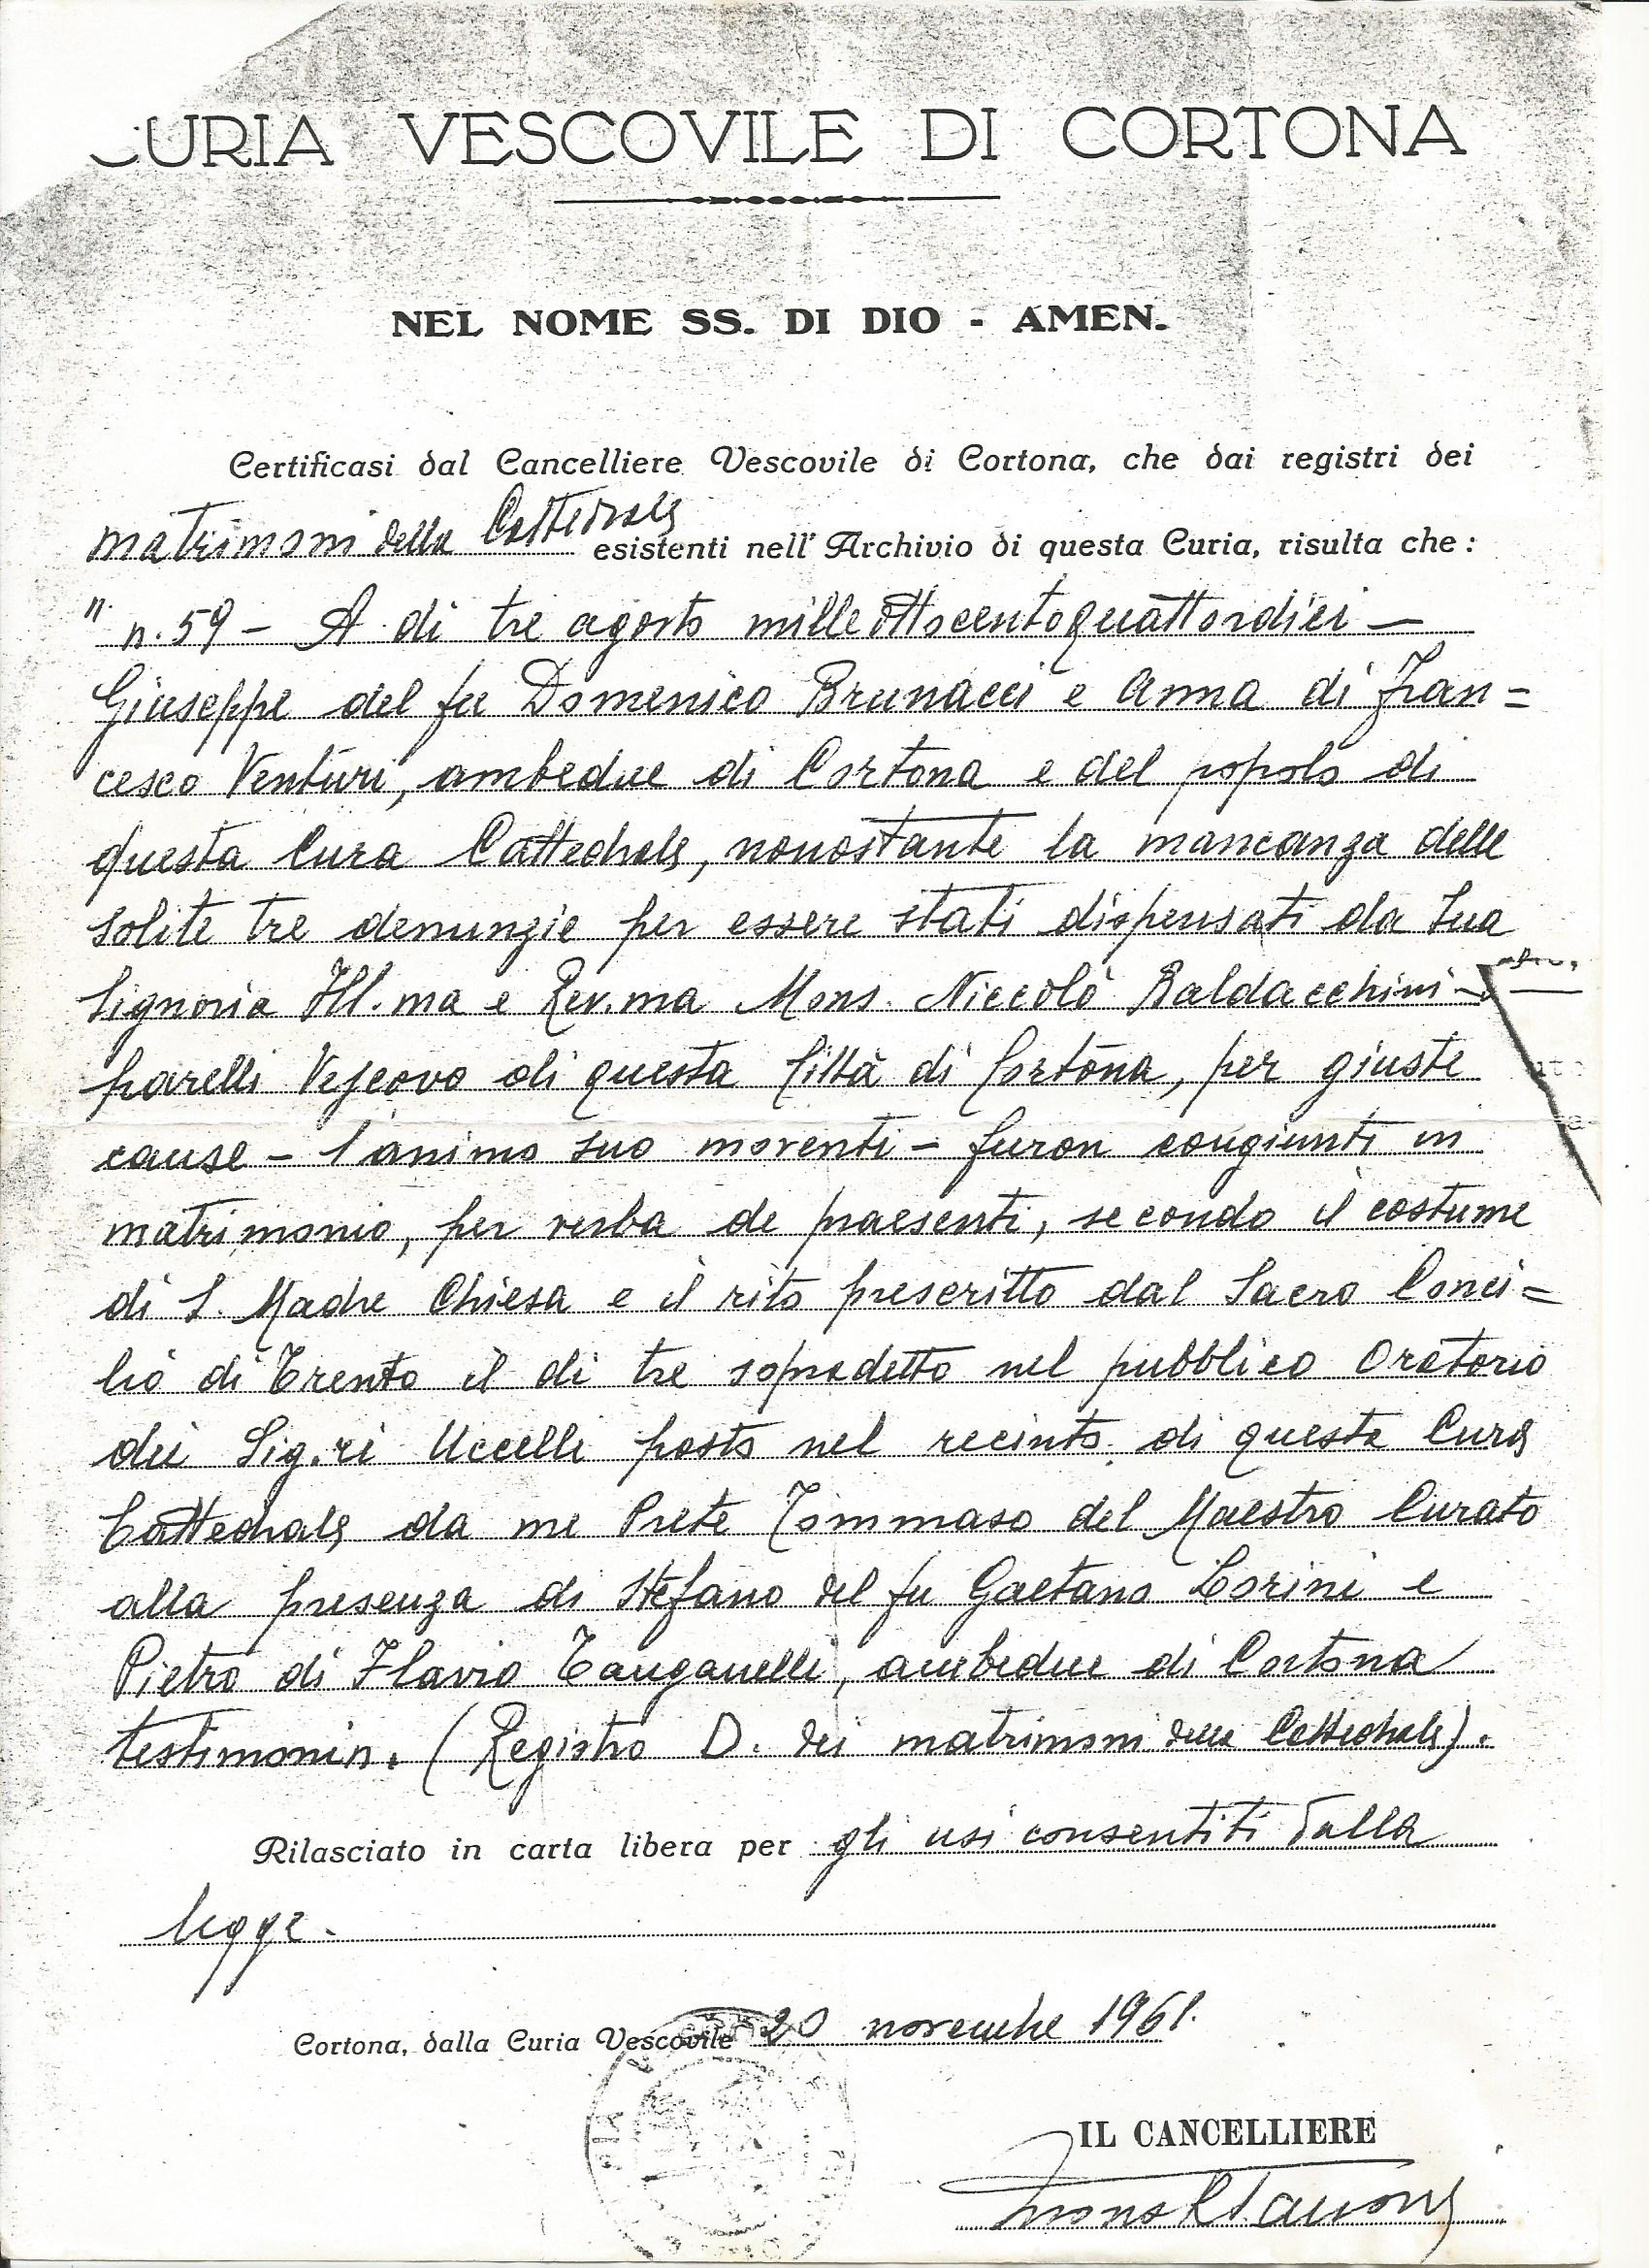 CURIA VESCOVILE DI CORTONA
NEL NOME SS. DI DIO - AMEN.
Certificasi dal Cancelliere Vescovile di Cortona, che dai registri dei
matrimoni della Cattedrale esistenti nell' Archivio di questa Curia, risulta che:
" n. 59 - A di tre agosto milleottocentoquattordici -
Giuseppe del fu Domenico Brunacci e Anna di Fran=
cesco Venturi, ambedue di Cortona e del popolo di
questa Cura Cattedrale, nonostante la mancanza delle
solite tre denunzie per essere stati dispensati da Sua
Signoria Ill.ma e Rev.ma Mons. Niccolò Baldacchini -
parelli Vescovo di questa Città di Cortona, per giuste
cause - l'animo suo moventi - furon congiunti in
matrimonio, per verba de praesenti, secondo il costume
di S. Madre Chiesa e il rito prescritto dal Sacro Conci=
lio di Trento il di tre sopradetto nel pubblico Oratorio
dei Sig.ri Uccelli posto nel recinto di questa Cura
Cattedrale da me Prete Tommaso del Maestro Curato
alla presenza di Stefano del fu Gaetano Lorini e
Pietro di Flavio Tanganelli, ambedue di Cortona
testimonin. (Registro D. dei matrimoni della Cattedrale).
Rilasciato in carta libera per gli usi consentiti dalla
legge.
Cortona, dalla Curia Vescovile 20 novembre 1961.
IL CANCELLIERE